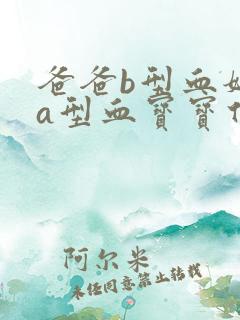 爸爸b型血
a型血宝宝
阿尔米
未经同意禁止转载